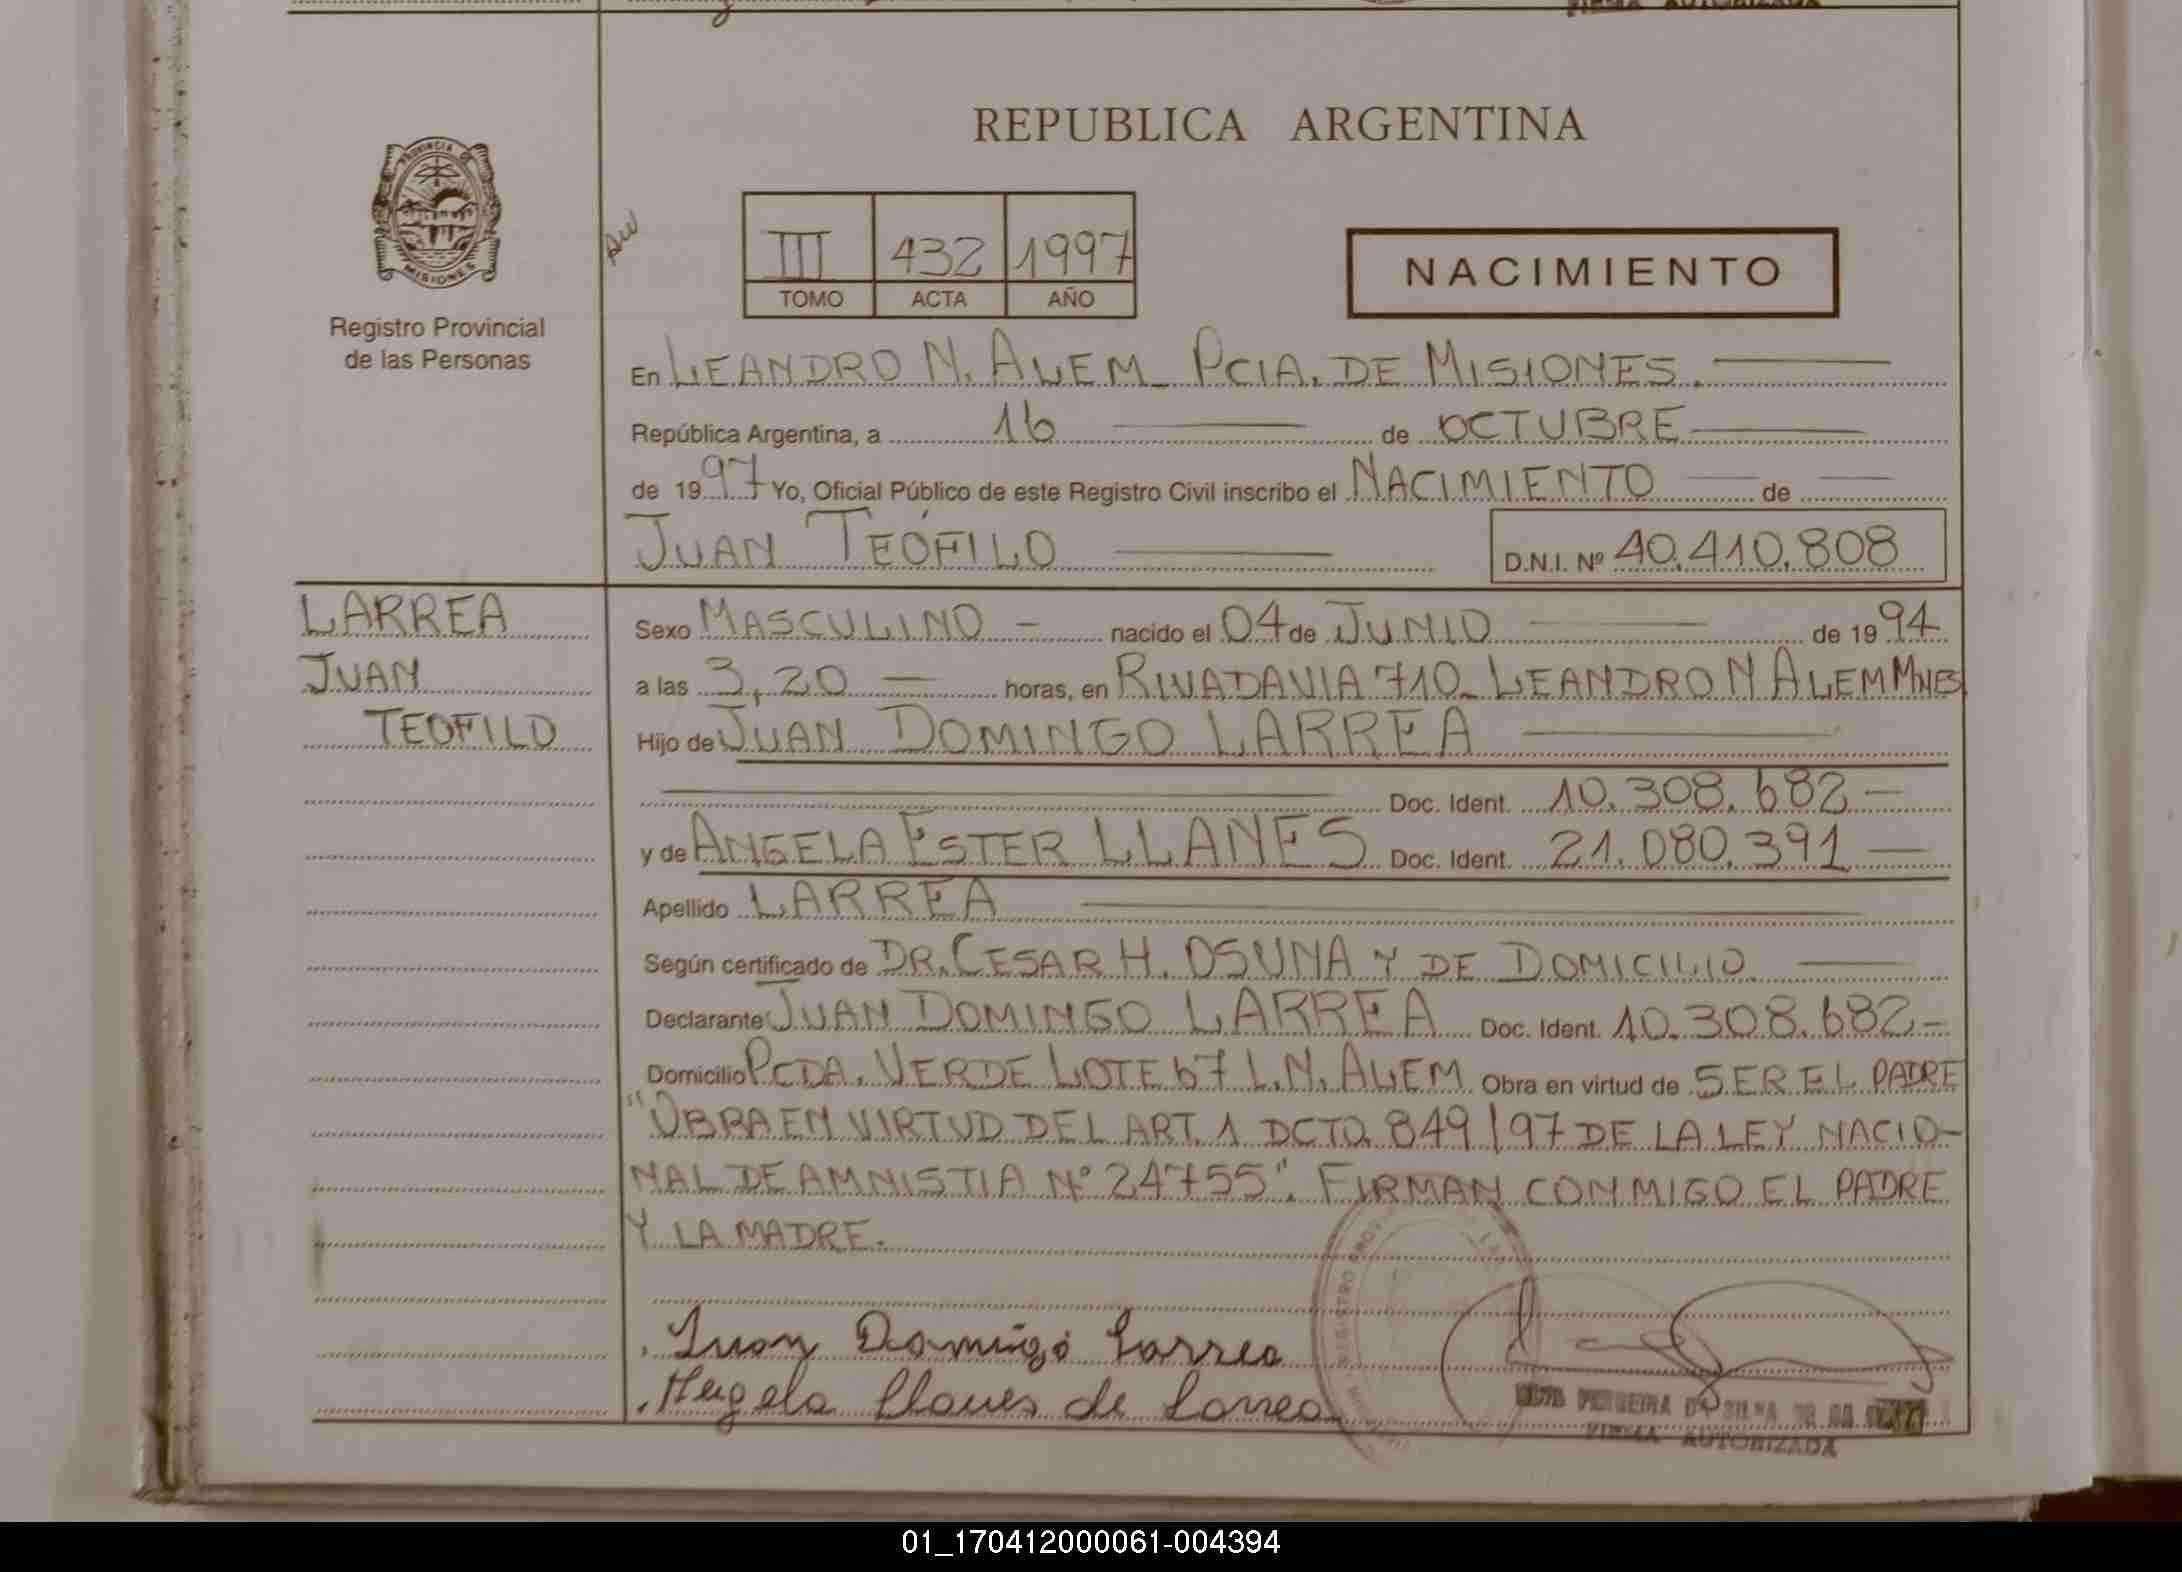 REPUBLICA ARGENTINA
PROVINCIA DE
MISIONES
Registro Provincial
de las Personas
III 432 1997
TOMO ACTA AÑO
NACIMIENTO
En LEANDRO N. ALEM PCIA. DE MISIONES.
República Argentina, a 16 de OCTUBRE
de 1997 Yo, Oficial Público de este Registro Civil inscribo el NACIMIENTO de
JUAN TEÓFILO D.N.I. Nº 40.410.808
LARREA
JUAN
TEOFILO
Sexo MASCULINO - nacido el 04 de JUNIO de 1994
a las 3,20 horas, en RIVADAVIA 710 LEANDRO N ALEM
Hijo de JUAN DOMINGO LARREA
Doc. Ident. 10.308.682
y de ANGELA ESTER LLANES Doc. Ident. 21.080.391
Apellido LARREA
Según certificado de DR. CESAR H. OSUNA Y DE DOMICILIO
Declarante JUAN DOMINGO LARREA Doc. Ident. 10.308.682-
Domicilio PCDA. VERDE LOTE 67 L.N. ALEM Obra en virtud de SER EL PADRE
"OBRA EN VIRTUD DEL ART. 1 DCTO. 849/97 DE LA LEY NACIO-
NAL DE AMNISTIA Nº 24755". FIRMAN CONMIGO EL PADRE
Y LA MADRE.
Juan Domingo Larrea
Angela Llanes de Larrea
FIRMA AUTORIZADA
01_170412000061-004394